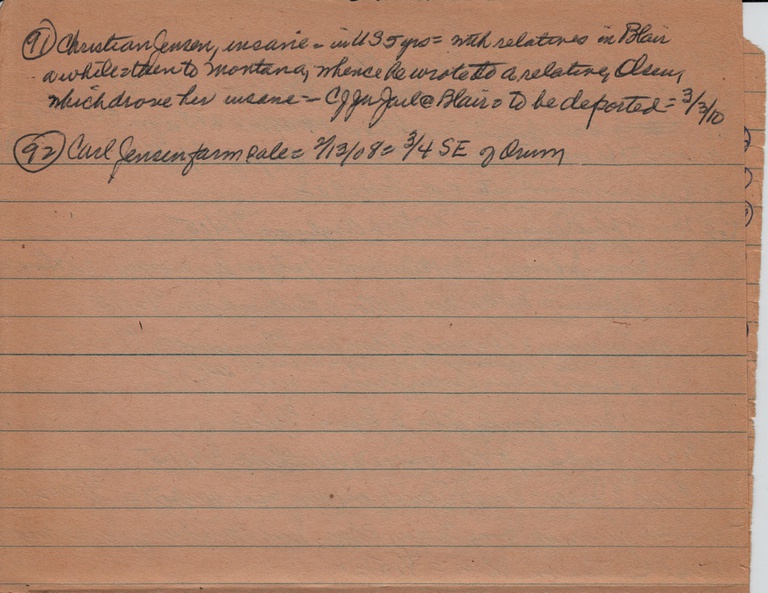 91) Christian Jensen, insane = in US 5 yrs = with relatives in Blair
awhile = then to Montana, whence he wrote to a relative, Olsen,
which drove her insane = CJ in Jail @ Blair = to be deported = 3/3/10
92) Carl Jensen farm sale = 2/13/08 = 3/4 SE of Orum